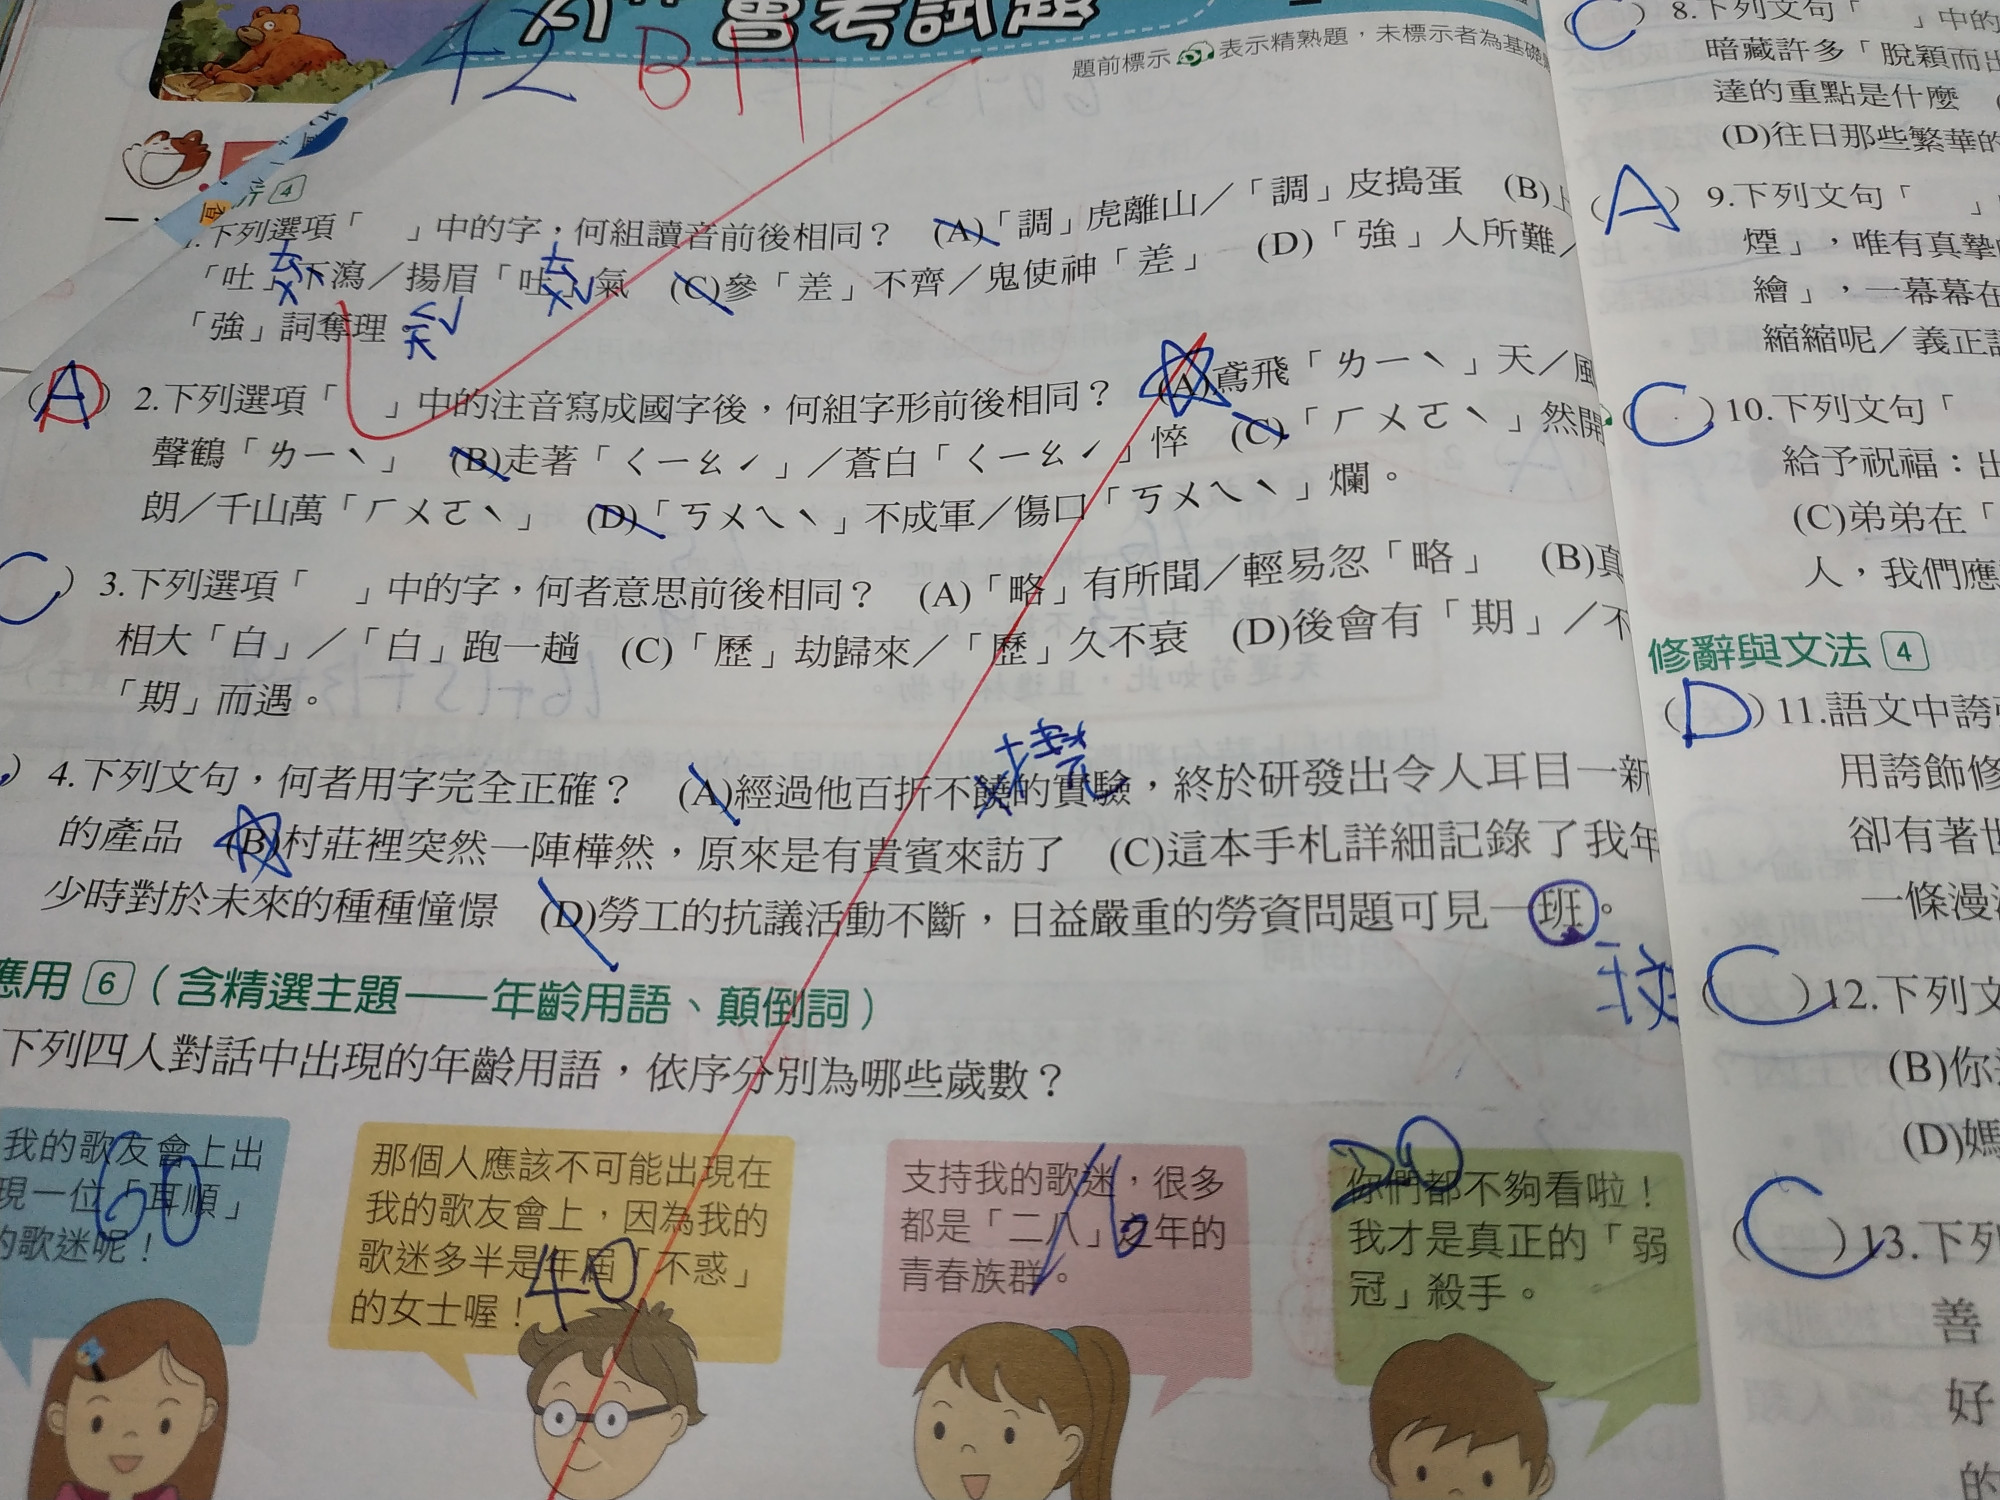 會考試題
42 B卄
題前標示 表示精熟題，未標示者為基礎
析 4
一、
1.下列選項「　」中的字，何組讀音前後相同？ (A)「調」虎離山／「調」皮搗蛋 (B)上
「吐」下瀉／揚眉「吐」氣 (C)參「差」不齊／鬼使神「差」 (D)「強」人所難／
「強」詞奪理。
(A) 2.下列選項「　」中的注音寫成國字後，何組字形前後相同？ (A)鳶飛「ㄌㄧˋ」天／風
聲鶴「ㄌㄧˋ」 (B)走著「ㄑㄧㄠˊ」／蒼白「ㄑㄧㄠˊ」悴 (C)「ㄏㄨㄛˋ」然開
朗／千山萬「ㄏㄨㄛˋ」 (D)「ㄎㄨㄟˋ」不成軍／傷口「ㄎㄨㄟˋ」爛。
C) 3.下列選項「　」中的字，何者意思前後相同？ (A)「略」有所聞／輕易忽「略」 (B)真
相大「白」／「白」跑一趟 (C)「歷」劫歸來／「歷」久不衰 (D)後會有「期」／不
「期」而遇。
) 4.下列文句，何者用字完全正確？ (A)經過他百折不饒的實驗，終於研發出令人耳目一新
的產品 (B)村莊裡突然一陣樺然，原來是有貴賓來訪了 (C)這本手札詳細記錄了我年
少時對於未來的種種憧憬 (D)勞工的抗議活動不斷，日益嚴重的勞資問題可見一班。
應用 6（含精選主題——年齡用語、顛倒詞）
下列四人對話中出現的年齡用語，依序分別為哪些歲數？
我的歌友會上出
現一位「耳順」
的歌迷呢！
60
那個人應該不可能出現在
我的歌友會上，因為我的
歌迷多半是年屆「不惑」
的女士喔！
40
支持我的歌迷，很多
都是「二八」之年的
青春族群。
16
你們都不夠看啦！
我才是真正的「弱
冠」殺手。
20
(C) 8.下列文句「　」中的
暗藏許多「脫穎而出
達的重點是什麼
(D)往日那些繁華的
(A) 9.下列文句「　」
煙」，唯有真摯
繪」，一幕幕在
縮縮呢／義正
(C) 10.下列文句「
給予祝福：出
(C)弟弟在「
人，我們應
修辭與文法 4
(D) 11.語文中誇
用誇飾修
卻有著世
一條漫
(C) 12.下列文
(B)你
(D)媽
(C) 13.下列
善
好
的